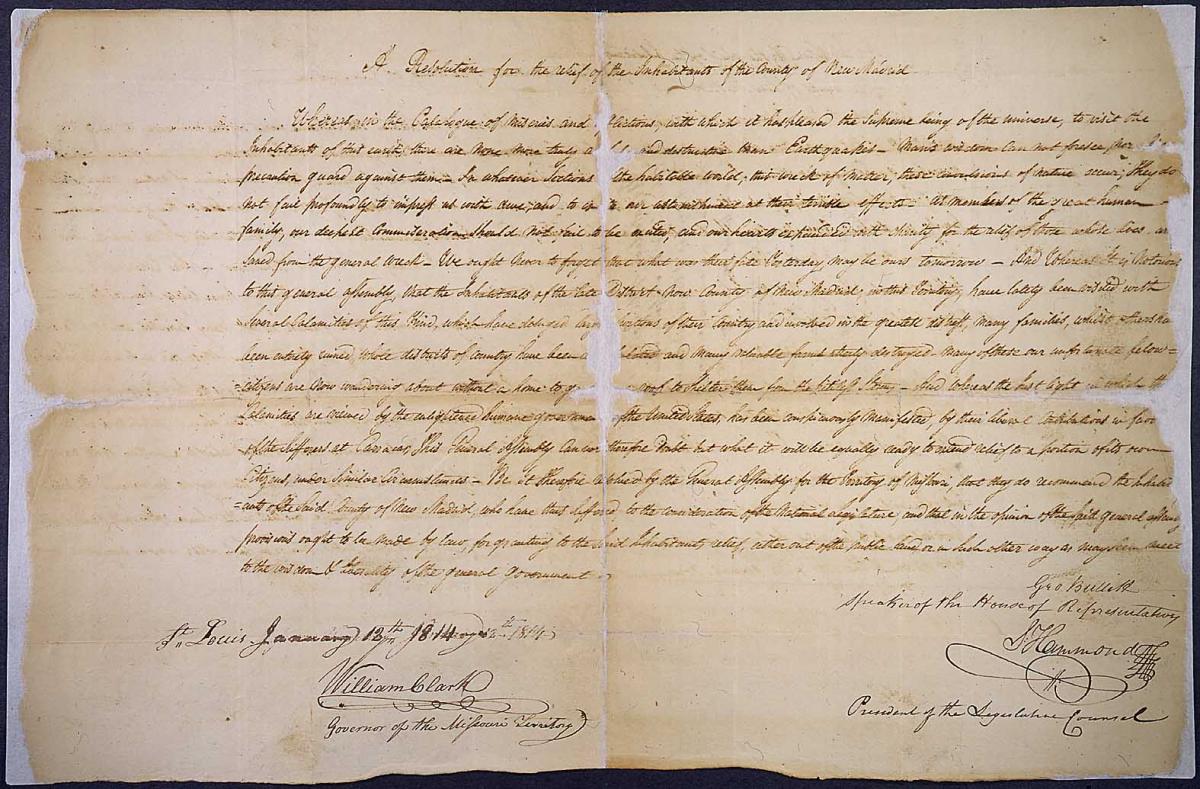 A Resolution for the relief of the Inhabitants of the County of New Madrid
Whereas in the Catalogue of Miseries and flictions, with which it has pleased the Supreme being of the universe, to visit the
Inhabitants of this earth, there are None more truly and destructive than Earthquakes – Man's wisdom can not foresee, nor
precaution guard against them – In whatever Sections the habitable world, this wreck of matter, these convulsions of nature occur, They do
not fail profoundly to impress us with awe, and to our astonishment at their terrible effects As members of the great human
family, our deepest Commiseration Should Not fail to be excited, and our hearts expanded with charity for the relief of those whose lives are
Saved from the general wreck – We ought Never to forget that what was their fate Yesterday, may be ours tomorrow – And Whereas It is Notorious
to this general assembly, that the Inhabitants of the late District Now County of New Madrid, in this Territory, have lately been visited with
Several Calamities of this Kind, which have deluged large portions of their Country and involved in the greatest distress, many families, whilst others have
been entirely ruined, whole districts of Country have been and many valuable farms utterly destroyed – Many of these our unfortunate fellow=
=citizens are Now wandering about without a home to go roof to shelter them from the pitiless Storm – And Whereas the just light in which the
Calamities are viewed by the enlightened humane government of the United States, has been conspicuously Manifested, by their liberal contributions in favor
of the Sufferers at Caraccas, This General Assembly Can not therefore doubt but what it will be equally ready to extend relief to a portion of its own
Citizens, under Similar Circumstances – Be it therefore resolved by the General Assembly for the Territory of Missouri, that they do recommend the Inhabit
=ants of the Said County of New Madrid, who have thus suffered to the consideration of the National Legislature and that in the opinion of the said general assembly
provisions ought to be made by law, for granting to the Said Inhabitants relief, either out of the public land or in such other way as may seem meet
to the wisdom & liberality of the general Government –
Geo Bullitt
Speaker of the House of Representatives
St. Louis January 12th 1814
S Hammond
President of the Legislative Counsel
William Clark
Governor of the Missouri Territory